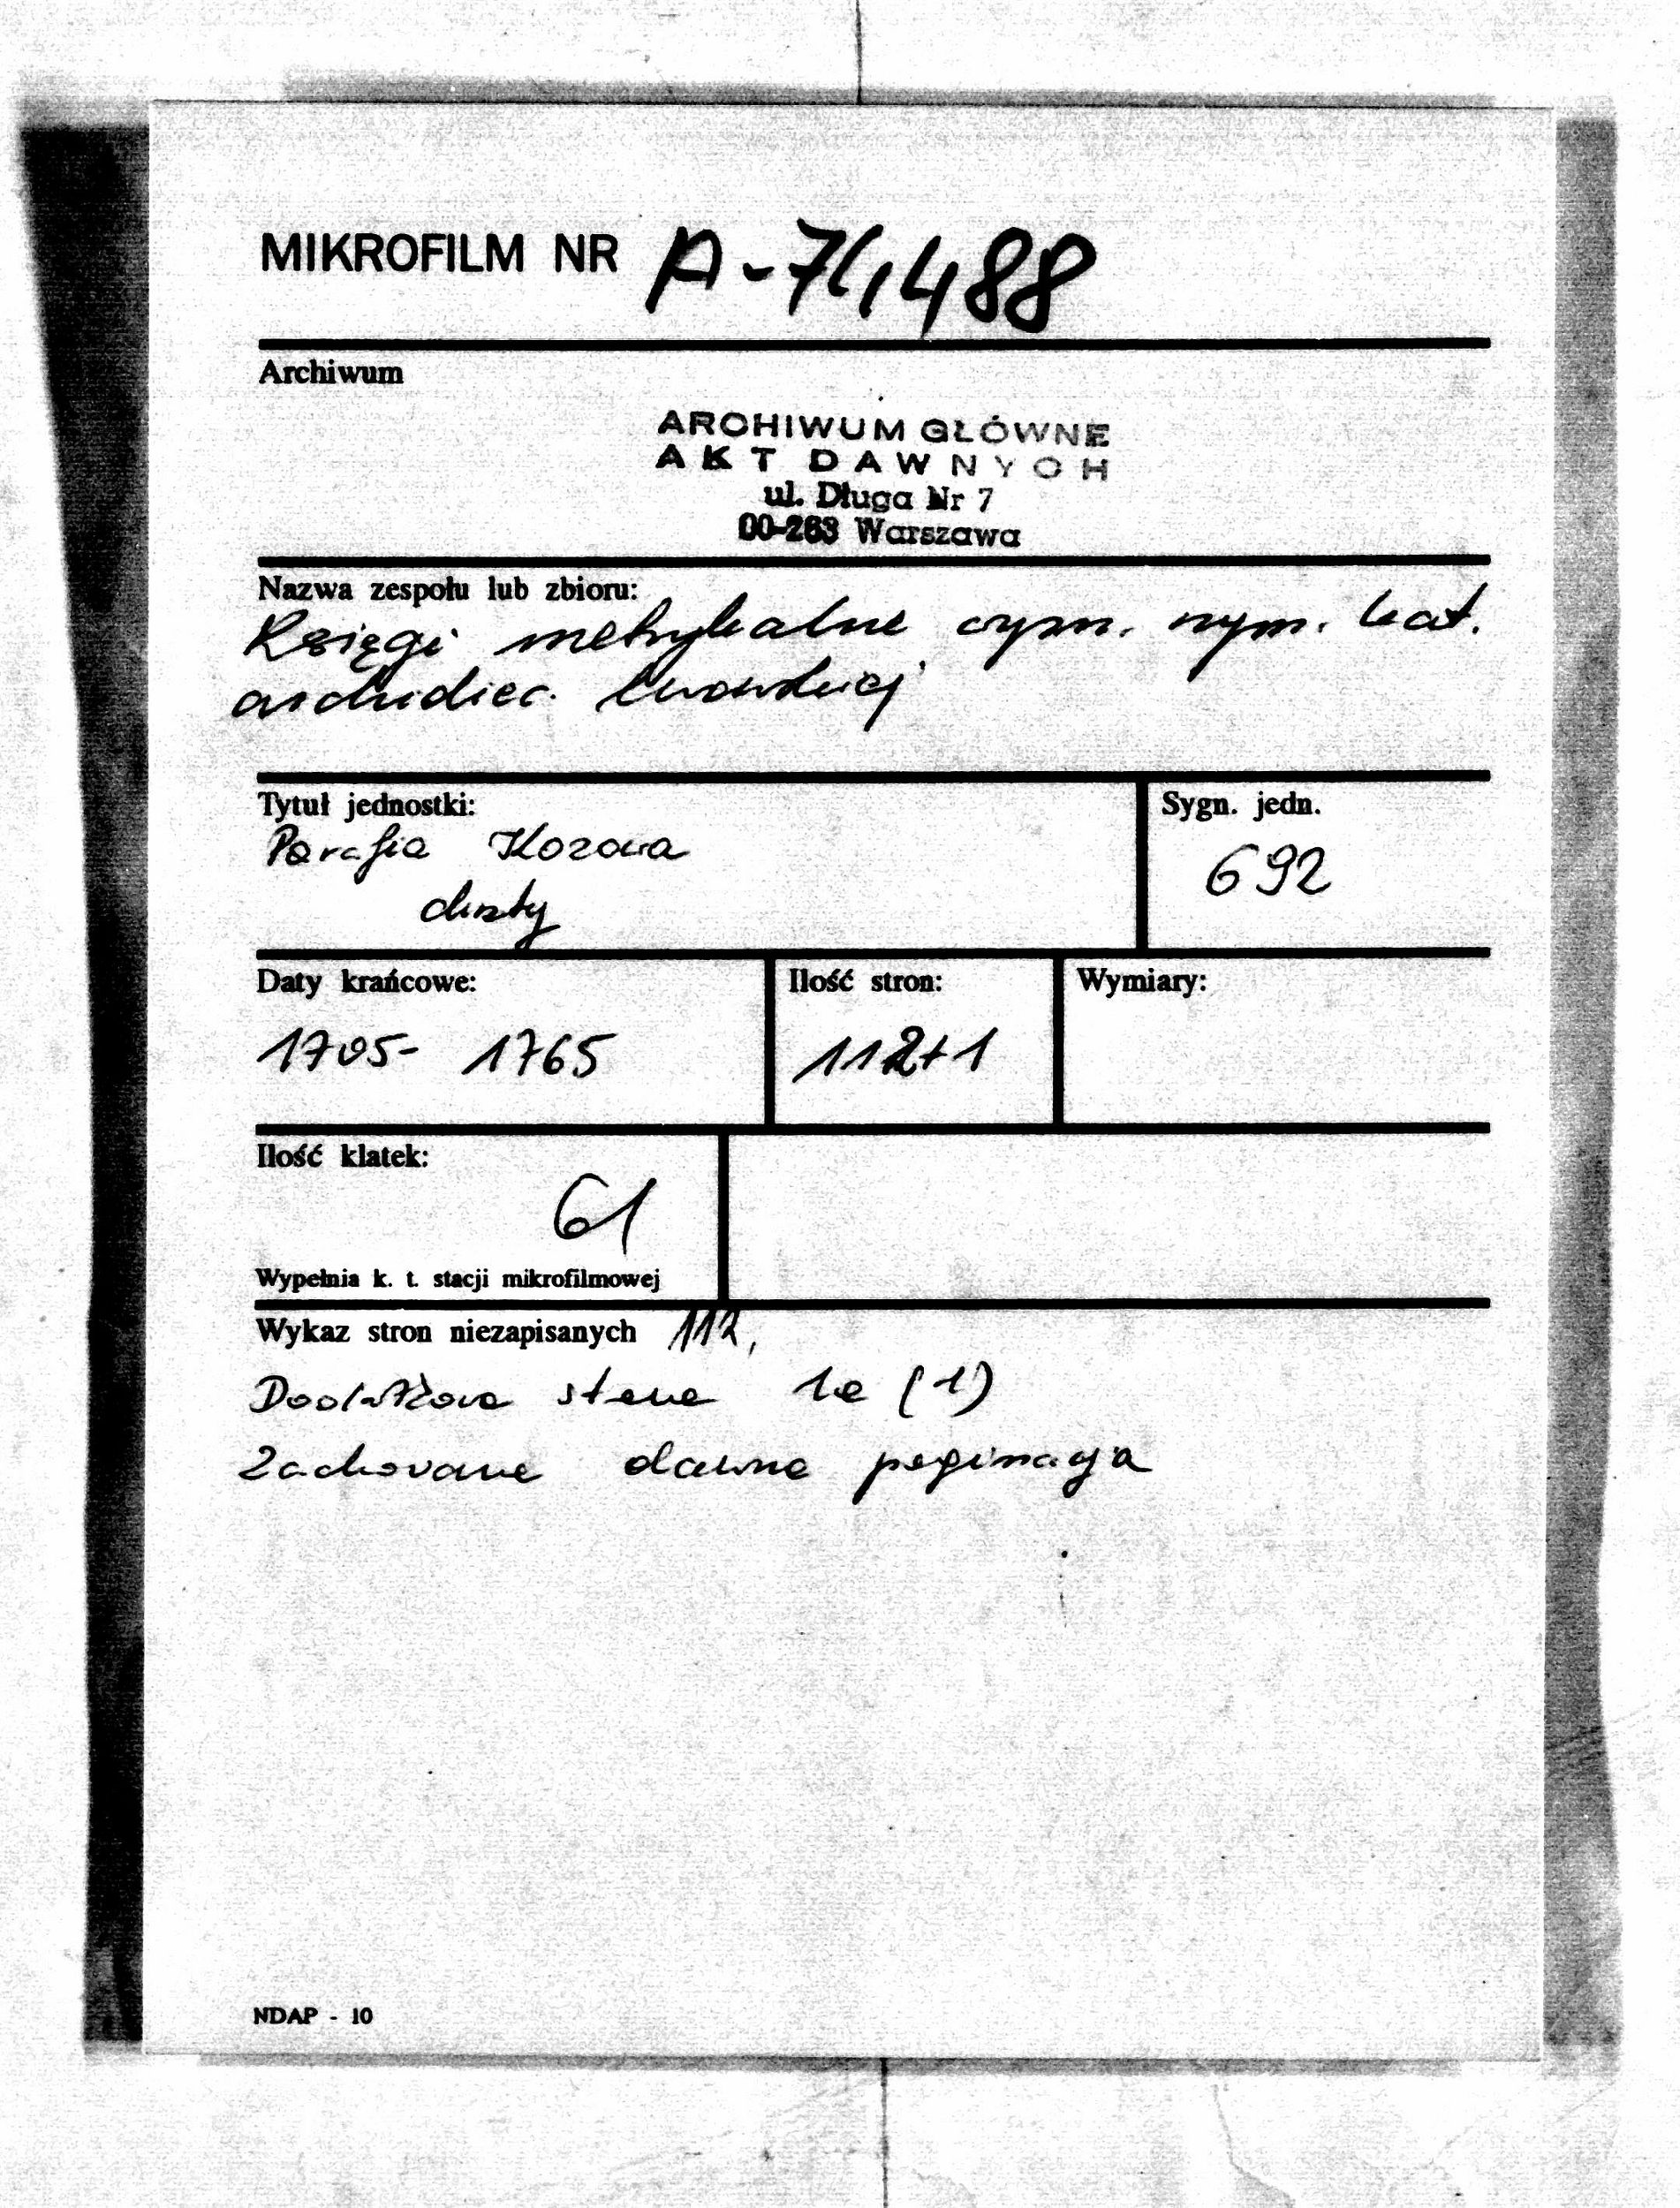 MIKROFILM NR A-71488
Archiwum
ARCHIWUM GŁÓWNE
AKT DAWNYCH
ul. Długa Nr 7
00-263 Warszawa
Nazwa zespołu lub zbioru:
Księgi metrykalne rzym. kat.
archidiec. lwowskiej
Tytuł jednostki:
Parafia Kozowa
chrzty
Sygn. jedn.
692
Daty krańcowe:
1705- 1765
Ilość stron:
112+1
Wymiary:
Ilość klatek:
61
Wypełnia k. t. stacji mikrofilmowej
Wykaz stron niezapisanych 112,
Dodatkowa strona 1a (1)
Zachowana dawna paginacja
NDAP - 10